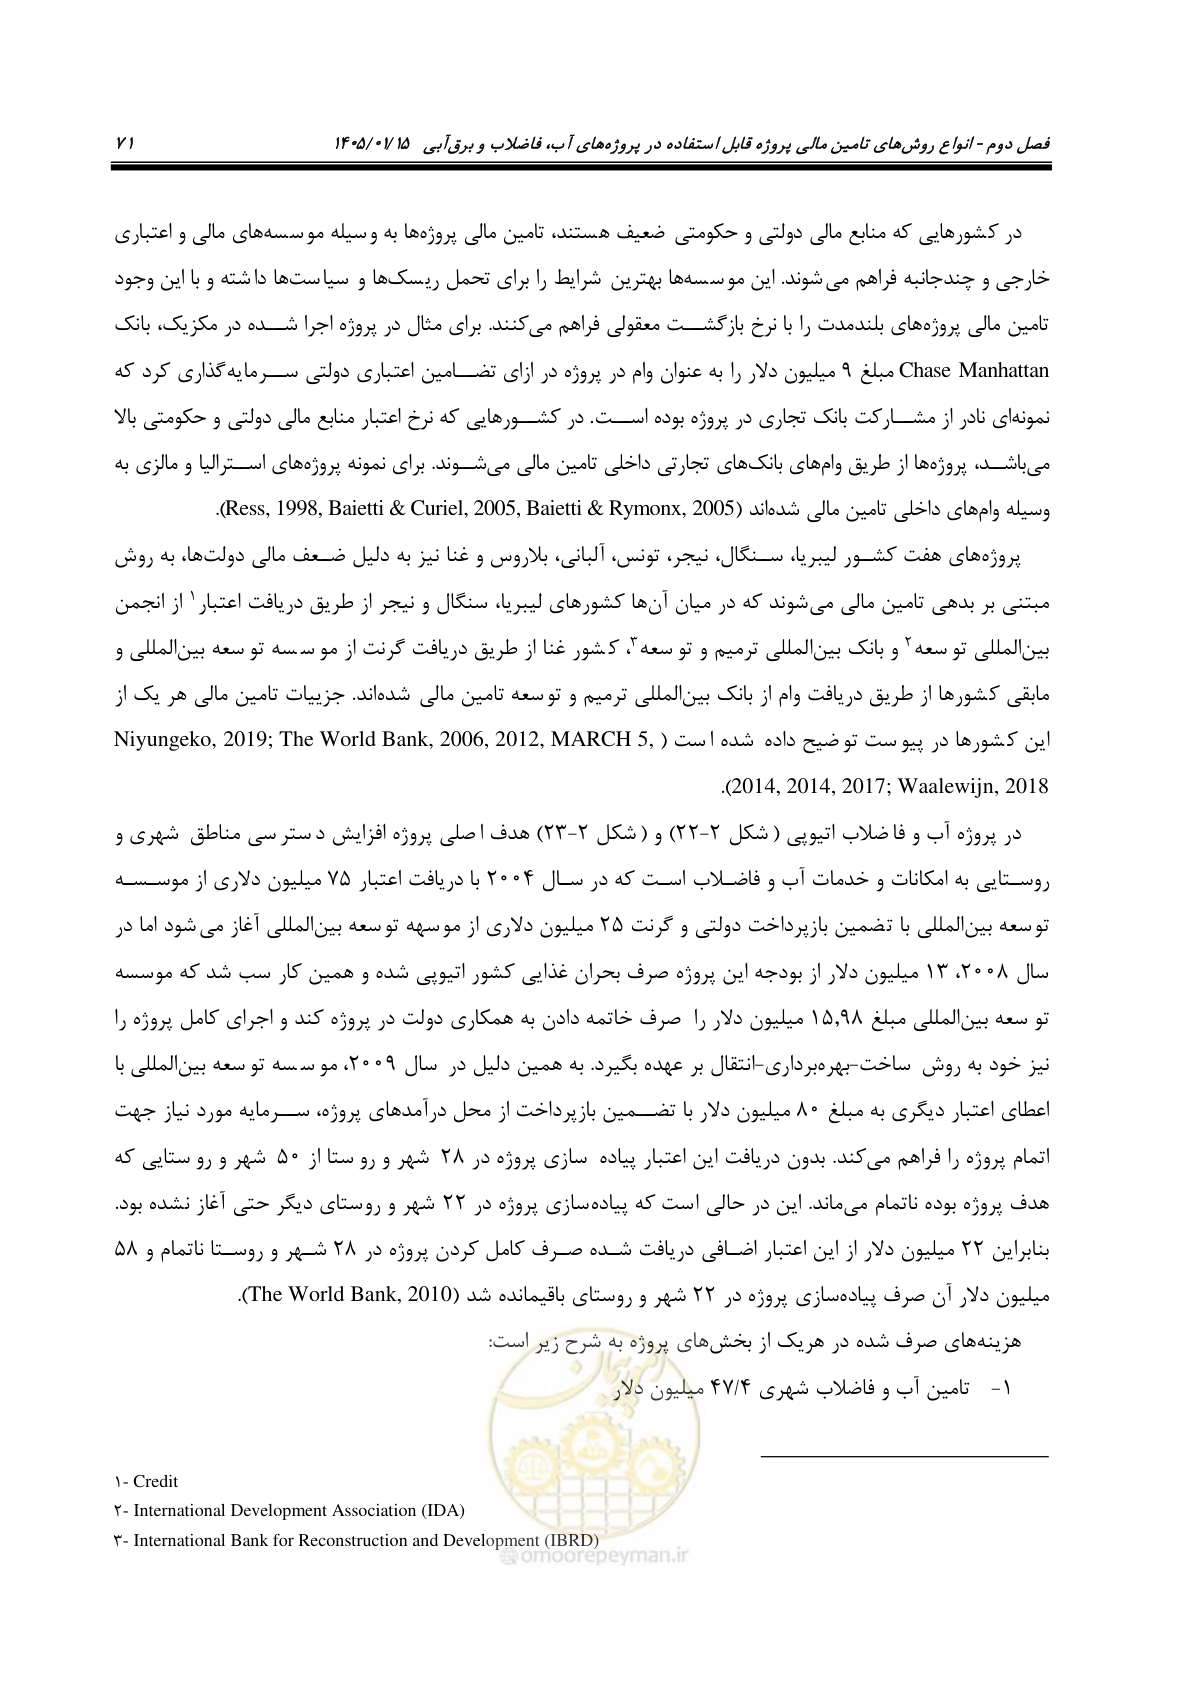 فصل دوم - انواع روش‌های تامین مالی پروژه قابل استفاده در پروژه‌های آب، فاضلاب و برق‌آبی ۱۴۰۵/۰۷/۱۵ ۷۱
در کشورهایی که منابع مالی دولتی و حکومتی ضعیف هستند، تامین مالی پروژه‌ها به وسیله موسسه‌های مالی و اعتباری
خارجی و چندجانبه فراهم می‌شوند. این موسسه‌ها بهترین شرایط را برای تحمل ریسک‌ها و سیاست‌ها داشته و با این وجود
تامین مالی پروژه‌های بلندمدت را با نرخ بازگشت معقولی فراهم می‌کنند. برای مثال در پروژه اجرا شده در مکزیک، بانک
Chase Manhattan مبلغ ۹ میلیون دلار را به عنوان وام در پروژه در ازای تضامین اعتباری دولتی سرمایه‌گذاری کرد که
نمونه‌ای نادر از مشارکت بانک تجاری در پروژه بوده است. در کشورهایی که نرخ اعتبار منابع مالی دولتی و حکومتی بالا
می‌باشد، پروژه‌ها از طریق وام‌های بانک‌های تجارتی داخلی تامین مالی می‌شوند. برای نمونه پروژه‌های استرالیا و مالزی به
وسیله وام‌های داخلی تامین مالی شده‌اند (Ress, 1998, Baietti & Curiel, 2005, Baietti & Rymonx, 2005).
پروژه‌های هفت کشور لیبریا، سنگال، نیجر، تونس، آلبانی، بلاروس و غنا نیز به دلیل ضعف مالی دولت‌ها، به روش
مبتنی بر بدهی تامین مالی می‌شوند که در میان آن‌ها کشورهای لیبریا، سنگال و نیجر از طریق دریافت اعتبار۱ از انجمن
بین‌المللی توسعه۲ و بانک بین‌المللی ترمیم و توسعه۳، کشور غنا از طریق دریافت گرنت از موسسه توسعه بین‌المللی و
مابقی کشورها از طریق دریافت وام از بانک بین‌المللی ترمیم و توسعه تامین مالی شده‌اند. جزییات تامین مالی هر یک از
این کشورها در پیوست توضیح داده شده است (Niyungeko, 2019; The World Bank, 2006, 2012, MARCH 5,
2014, 2014, 2017; Waalewijn, 2018).
در پروژه آب و فاضلاب اتیوپی (شکل ۲-۲۲) و (شکل ۲-۲۳) هدف اصلی پروژه افزایش دسترسی مناطق شهری و
روستایی به امکانات و خدمات آب و فاضلاب است که در سال ۲۰۰۴ با دریافت اعتبار ۷۵ میلیون دلاری از موسسه
توسعه بین‌المللی با تضمین بازپرداخت دولتی و گرنت ۲۵ میلیون دلاری از موسهه توسعه بین‌المللی آغاز می‌شود اما در
سال ۲۰۰۸، ۱۳ میلیون دلار از بودجه این پروژه صرف بحران غذایی کشور اتیوپی شده و همین کار سب شد که موسسه
توسعه بین‌المللی مبلغ ۱۵,۹۸ میلیون دلار را صرف خاتمه دادن به همکاری دولت در پروژه کند و اجرای کامل پروژه را
نیز خود به روش ساخت-بهره‌برداری-انتقال بر عهده بگیرد. به همین دلیل در سال ۲۰۰۹، موسسه توسعه بین‌المللی با
اعطای اعتبار دیگری به مبلغ ۸۰ میلیون دلار با تضمین بازپرداخت از محل درآمدهای پروژه، سرمایه مورد نیاز جهت
اتمام پروژه را فراهم می‌کند. بدون دریافت این اعتبار پیاده سازی پروژه در ۲۸ شهر و روستا از ۵۰ شهر و روستایی که
هدف پروژه بوده ناتمام می‌ماند. این در حالی است که پیاده‌سازی پروژه در ۲۲ شهر و روستای دیگر حتی آغاز نشده بود.
بنابراین ۲۲ میلیون دلار از این اعتبار اضافی دریافت شده صرف کامل کردن پروژه در ۲۸ شهر و روستا ناتمام و ۵۸
میلیون دلار آن صرف پیاده‌سازی پروژه در ۲۲ شهر و روستای باقیمانده شد (The World Bank, 2010).
هزینه‌های صرف شده در هریک از بخش‌های پروژه به شرح زیر است:
۱- تامین آب و فاضلاب شهری ۴۷/۴ میلیون دلار
۱- Credit
۲- International Development Association (IDA)
۳- International Bank for Reconstruction and Development (IBRD)
امور پیمان
@omoorepeyman.ir